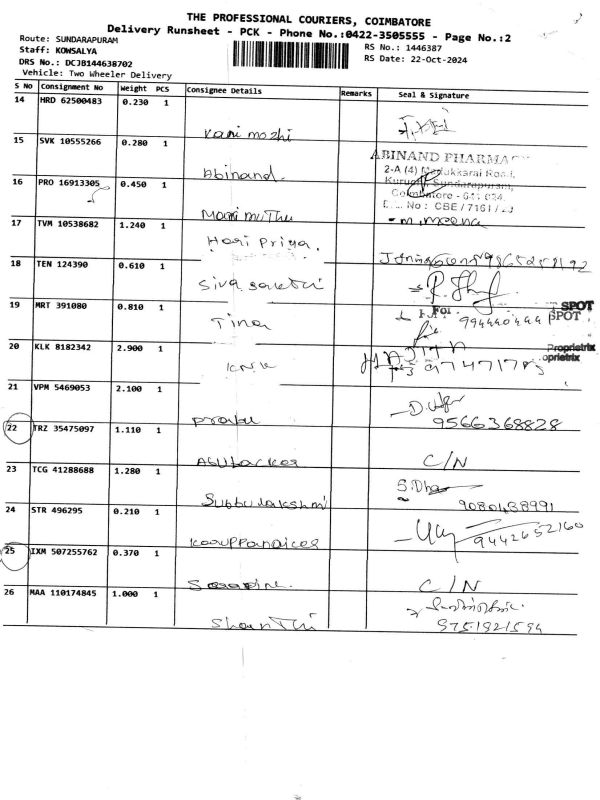 THE PROFESSIONAL COURIERS, COIMBATORE
Delivery Runsheet - PCK - Phone No.:0422-3505555 - Page No.:2
Route: SUNDARAPURAM
RS No.: 1446387
Staff: KOWSALYA
RS Date: 22-Oct-2024
DRS No.: DCJB144638702
Vehicle: Two Wheeler Delivery
S No Consignment No Weight PCS Consignee Details Remarks Seal & Signature
14 HRD 62500483 0.230 1
Kani mozhi
15 SVK 10555266 0.280 1
Abinand.
ABINAND PHARMACY
2-A (4) Madukkarai Road,
Kuruchi, Sundarapuram,
Coimbatore - 641 024.
No : CBE / 7161 /
16 PRO 16913305 0.450 1
Mari muthu
- m. meena
17 TVM 10538682 1.240 1
Hari Priya.
18 TEN 124390 0.610 1
Siva sakthi
19 MRT 391080 0.810 1
Tina
For
SPOT
SPOT
Proprietrix
oprietrix
20 KLK 8182342 2.900 1
K.N.K
21 VPM 5469053 2.100 1
Prabu
9566368828
22 TRZ 35475097 1.110 1
Abubacker
C/N
23 TCG 41288688 1.280 1
Subbulakshmi
S.Dha
9080488991
24 STR 496295 0.210 1
Karuppanaicker
9442652160
25 IXM 507255762 0.370 1
C/N
26 MAA 110174845 1.000 1
Shanthi
9751921594